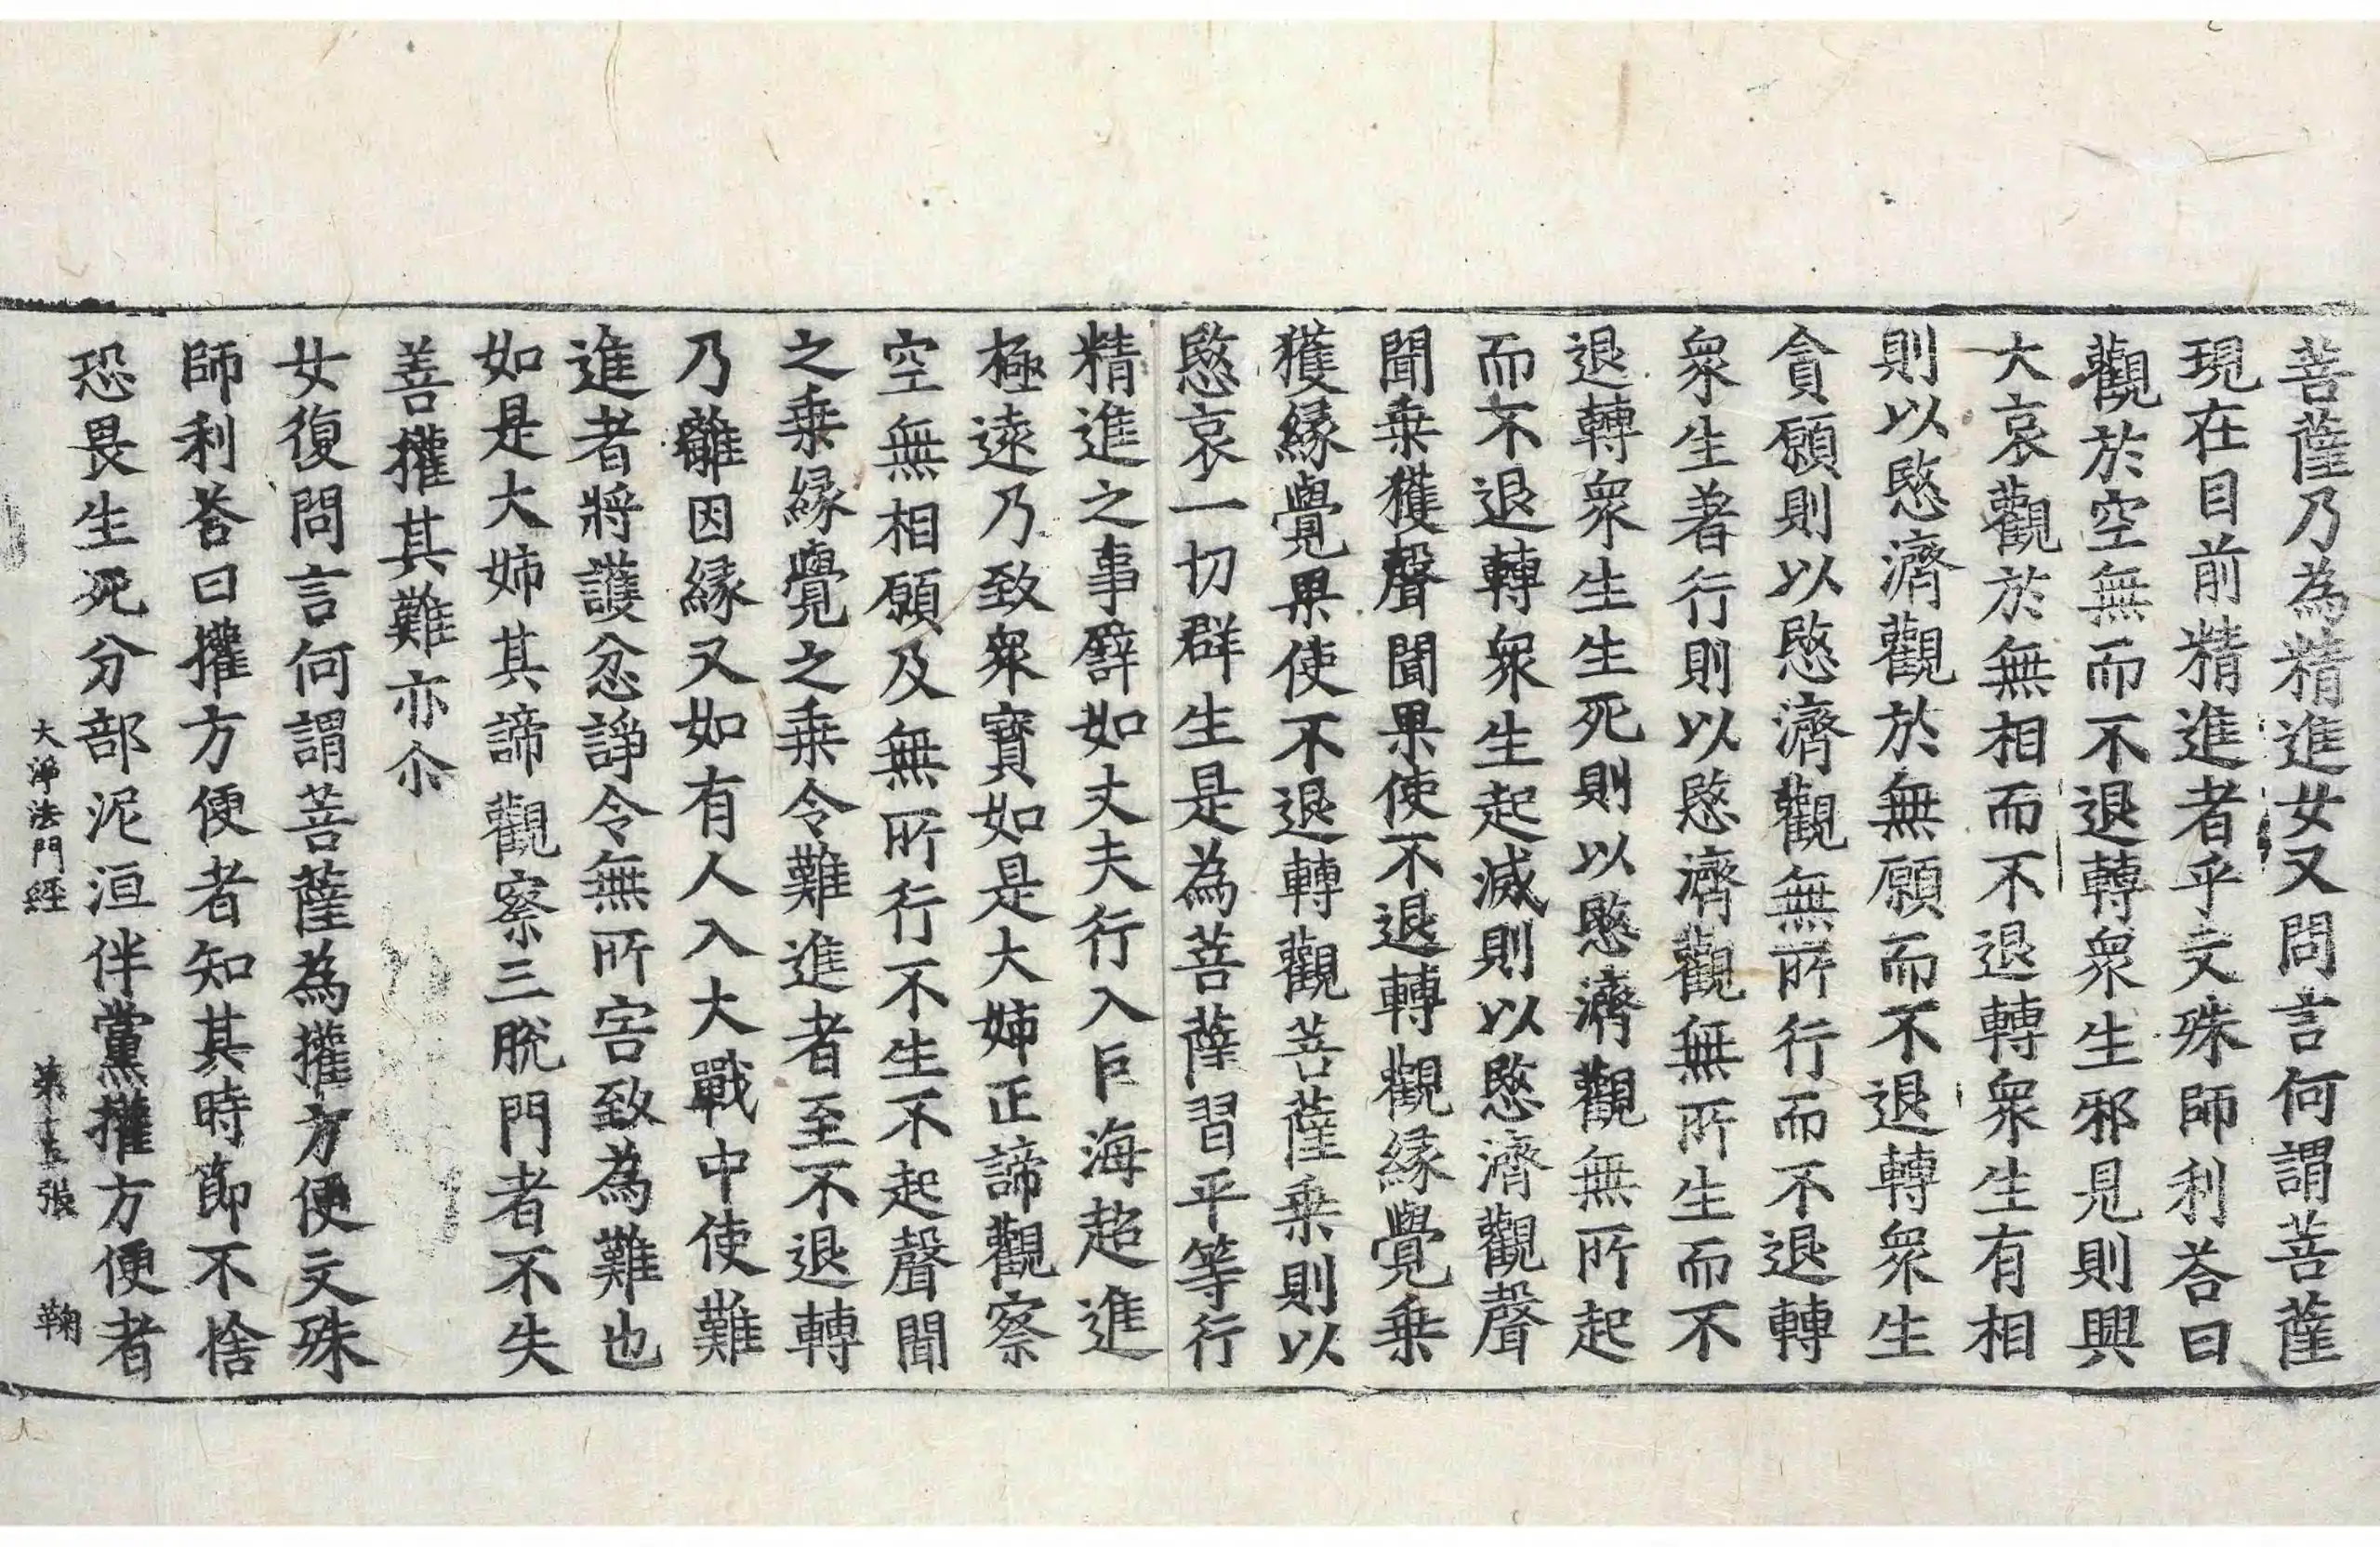 菩薩乃為精進女又問言何謂菩薩
現在目前精進者乎文殊師利荅曰
觀於空無而不退轉衆生邪見則興
大哀觀於無相而不退轉衆生有相
則以愍濟觀於無願而不退轉衆生
貪願則以愍濟觀無所行而不退轉
衆生著行則以愍濟觀無所生而不
退轉衆生生死則以愍濟觀無所起
而不退轉衆生起滅則以愍濟觀聲
聞乗獲聲聞果使不退轉觀緣覺乗
獲緣覺果使不退轉觀菩薩乗則以
愍哀一切群生是為菩薩習平等行
精進之事譬如丈夫行入巨海超進
極遠乃致衆寶如是大姉正諦觀察
空無相願及無所行不生不起聲聞
之乗緣覺之乗令難進者至不退轉
乃離因緣又如有人入大戰中使難
進者將護忿諍令無所害致為難也
如是大姉其諦觀察三脫門者不失
善權其難亦尒
女復問言何謂菩薩為權方便文殊
師利荅曰權方便者知其時節不捨
恐畏生死分部泥洹伴黨權方便者
大淨法門經 第十五張 鞠